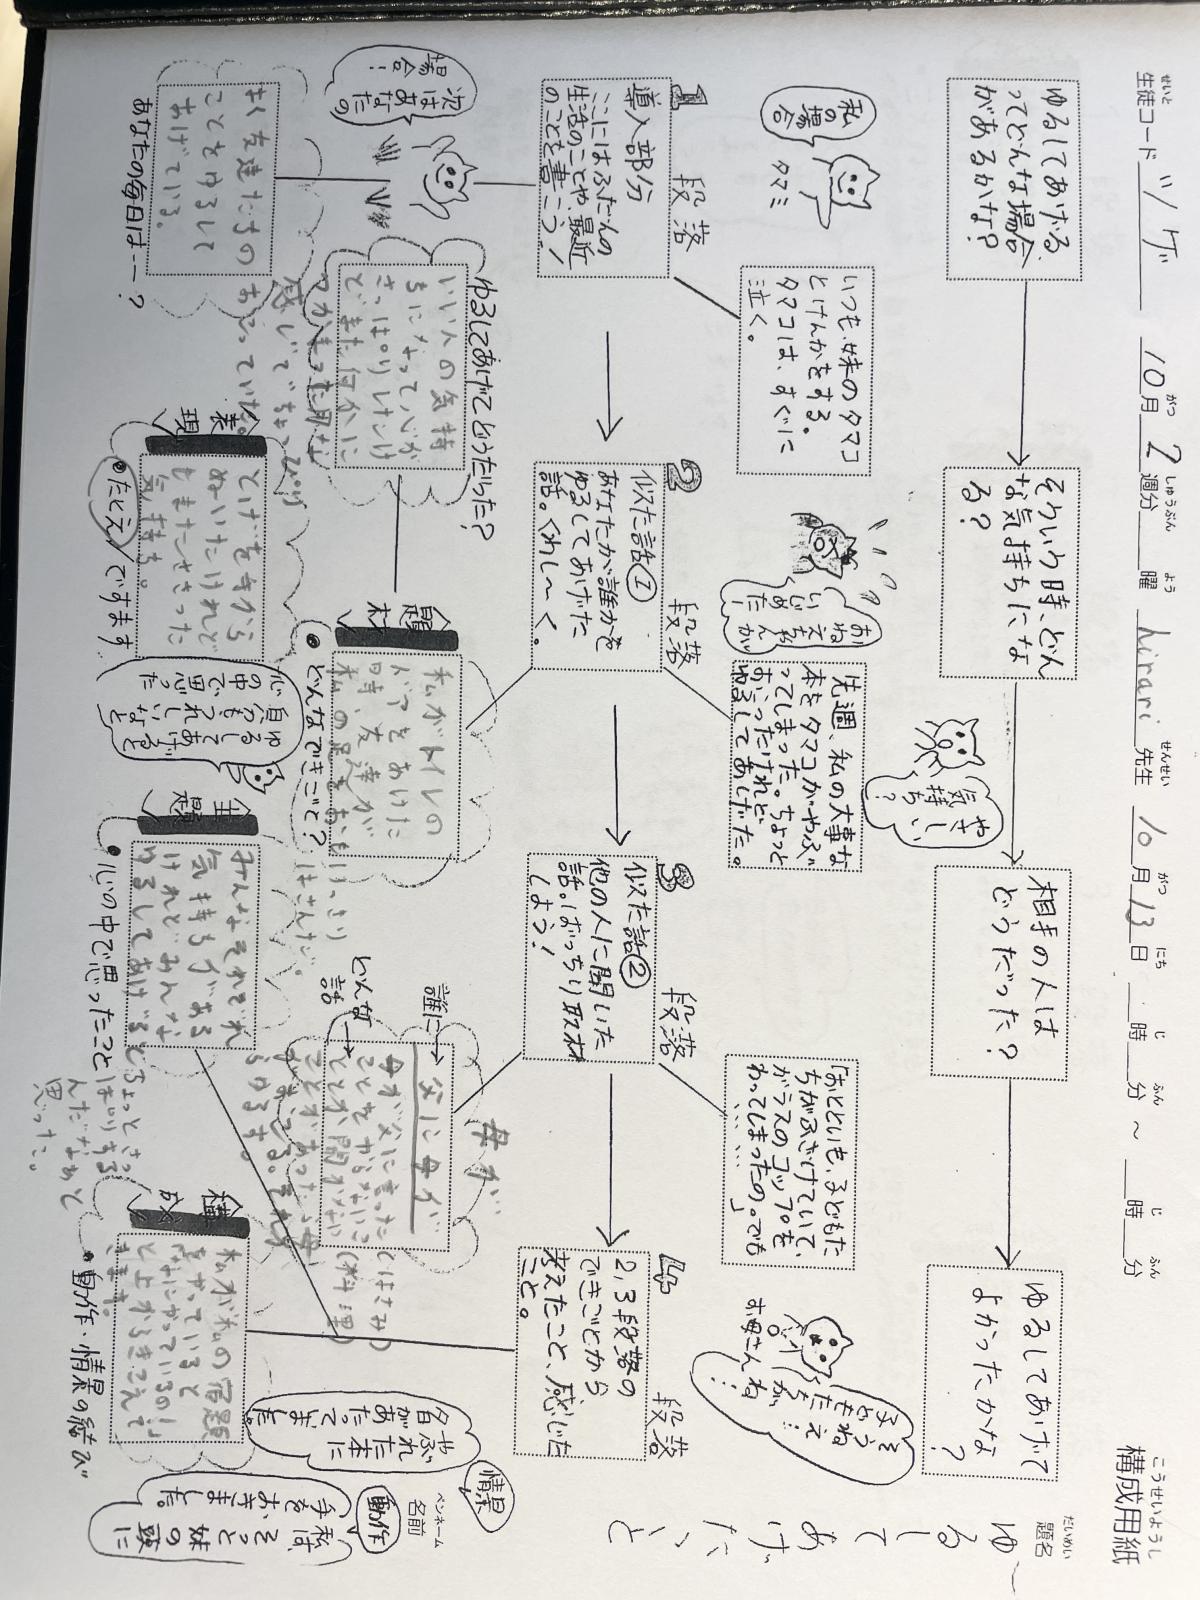 構成用紙
こうせいようし
生徒コード ツゲ 10月2週分 曜 hirari 先生 10月13日 時 分 ~ 時 分
せいと がつ しゅうぶん よう せんせい がつ にち じ ふん じ ふん
題名
だいめい
ゆるして
あげたいと
ゆるしてあげる
ってどんな場合
があるかな?
そういう時、どん
な気持ちにな
る?
やさしい
気持ち?
相手の人は
どうだった?
ゆるしてあげて
よかったかな
?
私の
場合
タマミ
いつも、妹のタマコ
とけんかをする。
タマコは、すぐに
泣く。
おねえちゃんが
いじめた!
先週、私の大事な
本をタマコがやぶ
ってしまった。ちょっと
おこったけれど、
ゆるしてあげた。
お母さんね
「おとといも、子どもた
ちがふざけていて、
ガラスのコップを
わってしまったの。でも
……」
1 段落
導入部分
ここにはふだんの
生活のことや、最近
のことを書こう!
2 段落
似た話①
あなたが誰かを
ゆるしてあげた
話。くわし~く。
3 段落
似た話②
他の人に聞いた
話。ばっちり取材
しよう!
4 段落
2,3段落の
できごとから
考えたこと、感じた
こと。
次はあなたの
場合!
あなたの毎日は……?
よく友達たちの
ことをゆるして
あげている。
ゆるしてあげてどうだった?
いい人の気持
ちになって、心が
さっぱりしたけ
どまた何かに
感じでちょっぴり
おこっていた。
題材
どんなできごと?
私がトイレの
ドアをあけた
時、友達が
私の足をおもいっきり
はさんだ。
表現
たとえ/ですます
とげを手から
ぬいたけれど
もまたささった
気持ち。
誰に
どんな話
母が
父に母が
母が父に言った
主題
心の中で思ったこと
みんなそれぞれ
気持ちがある
けれどみんな
ゆるしてあげると
ちょっとさっ
ぱりする
んだなあと
思った。
ゆるしてあげると
自分もうれしいなと
心の中で思った
構成
動作・情景の結び
私が私の宿題
をやっていると
「なにやっているの!」
と上からきこえて
きます。
情景
やぶれた本に
名前があった。でました。
動作
私は、そっと妹の頭に
手をおきました。
ペンネーム
名前